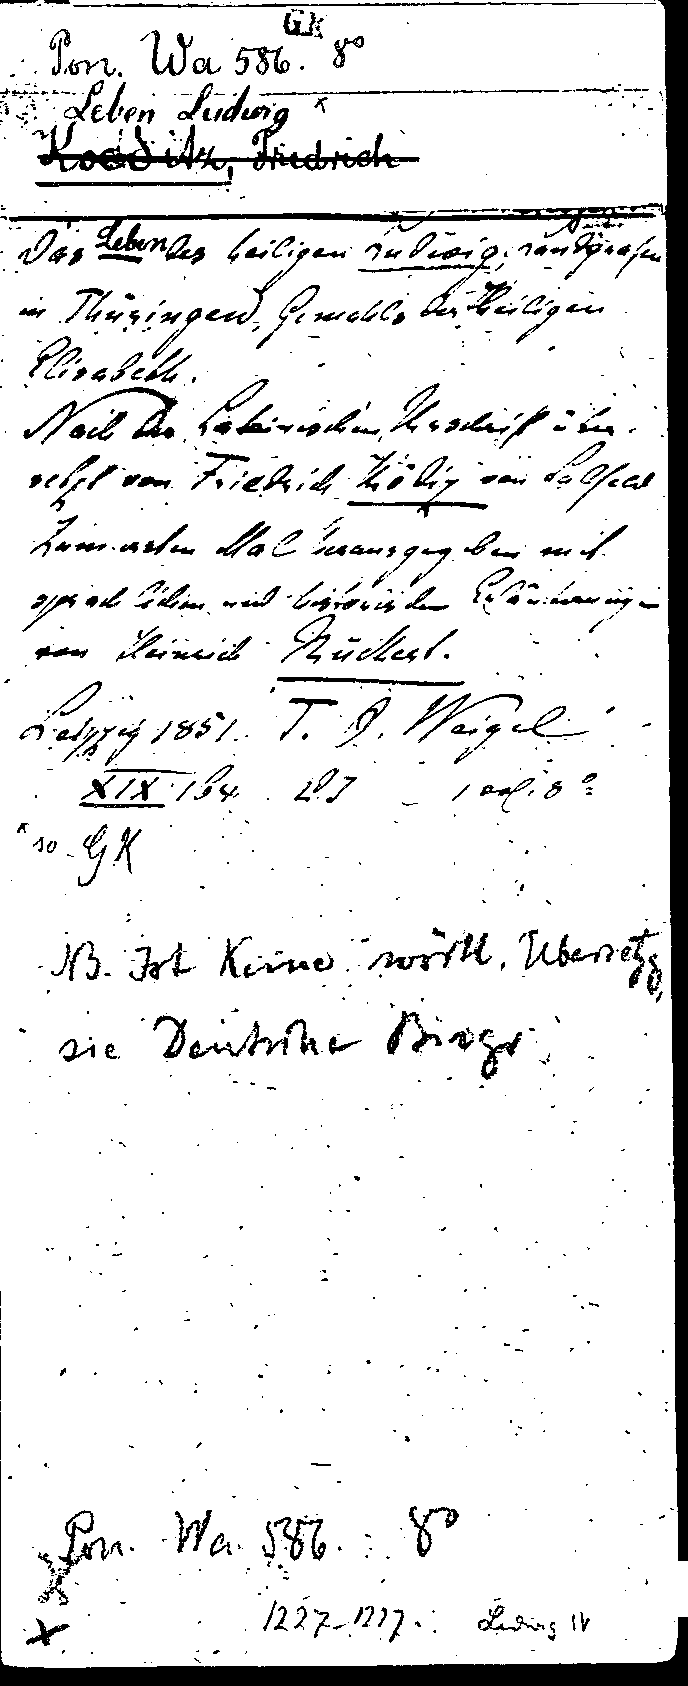 GK
Pon. Wa 586. 8°
Leben Ludwig ×
Koeditz, Friedrich
Das Leben des heiligen Ludwig, Landgrafen
in Thüringen, Gemahls der Heiligen
Elisabeth.
Nach der Lateinischen Urschrift über-
setzt von Friedrich Ködiz von Salfeld
Zum ersten Mal herausgegeben mit
sprachlichen und historischen Erläuterungen
von Heinrich Rückert.
Leipzig 1851. T. O. Weigel
XIX 164 1 vol. 8°
× so GK
NB. Ist Keine wörtl. Übersetzg,
sie Deutsche Biogr.
Pon. Wa 586. 8°
×
1227 Ludwig IV